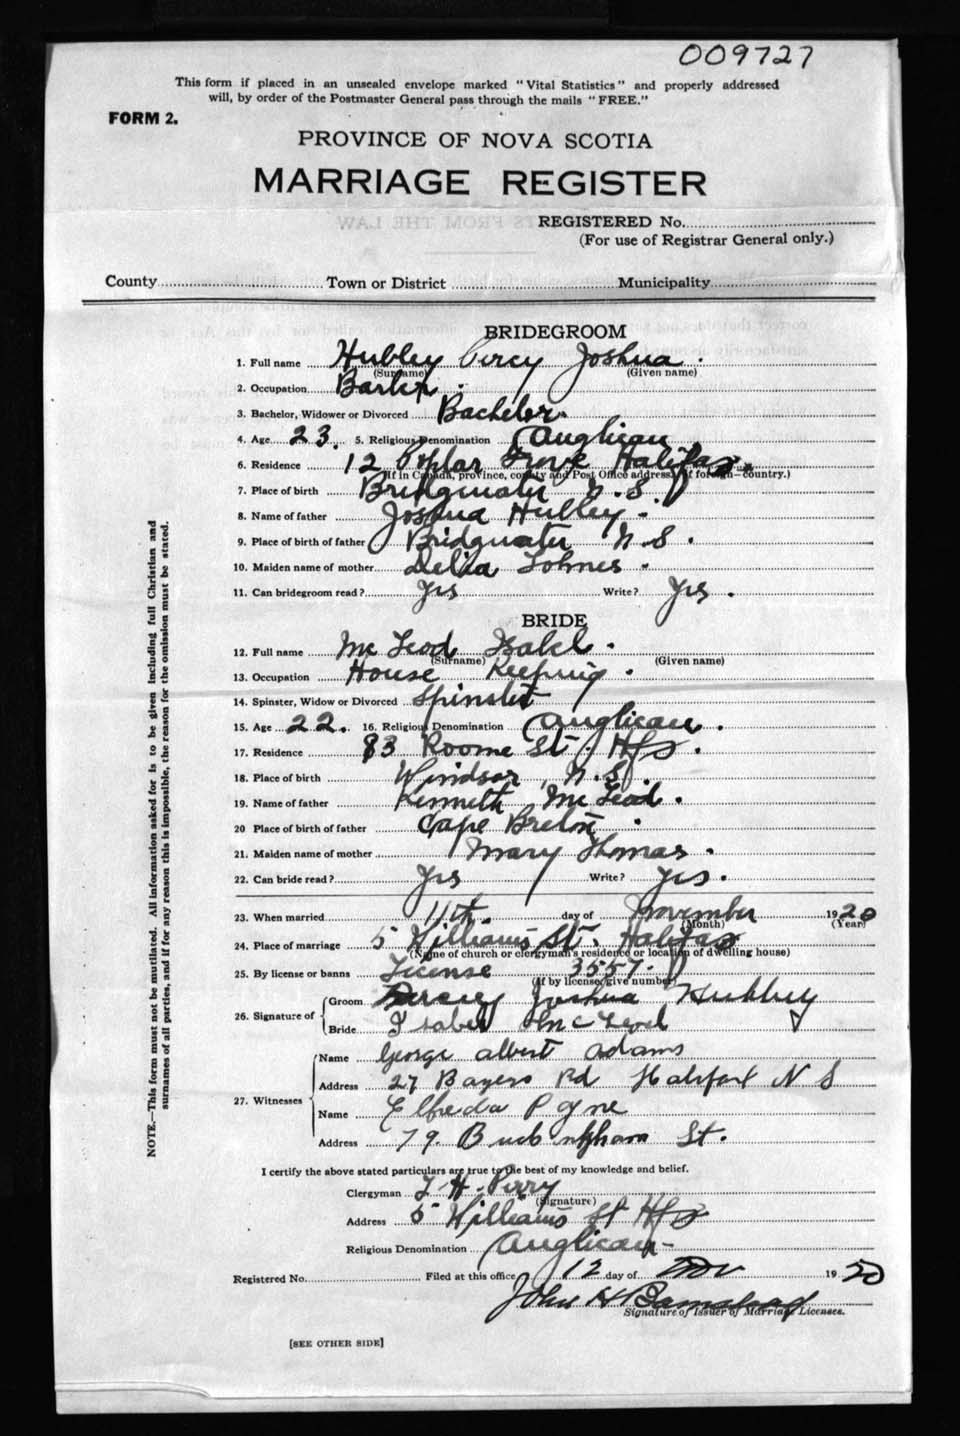 009727
This form if placed in an unsealed envelope marked "Vital Statistics" and properly addressed
will, by order of the Postmaster General pass through the mails "FREE."
FORM 2.
PROVINCE OF NOVA SCOTIA
MARRIAGE REGISTER
REGISTERED No.
(For use of Registrar General only.)
County Town or District Municipality
BRIDEGROOM
1. Full name Hubley Percy Joshua.
(Surname) (Given name)
2. Occupation Barber.
3. Bachelor, Widower or Divorced Bachelor.
4. Age 23. 5. Religious Denomination Anglican
6. Residence 12 Poplar Grove Halifax.
(If in Canada, province, county and Post Office address; if foreign—country.)
7. Place of birth Bridgwater N.S.
8. Name of father Joshua Hubley.
9. Place of birth of father Bridgwater N.S.
10. Maiden name of mother Delia Lohnes.
11. Can bridegroom read? Yes Write? Yes.
BRIDE
12. Full name Mc Leod Isabel.
(Surname) (Given name)
13. Occupation House Keeping.
14. Spinster, Widow or Divorced Spinster
15. Age 22. 16. Religious Denomination Anglican.
17. Residence 83 Roome St. Hfx.
18. Place of birth Windsor, N.S.
19. Name of father Kenneth Mc Leod.
20 Place of birth of father Cape Breton.
21. Maiden name of mother Mary Thomas.
22. Can bride read? Yes Write? Yes.
23. When married 11th. day of November 1920
(Month) (Year)
24. Place of marriage 5 Williams St. Halifax
(Name of church or clergyman's residence or location of dwelling house)
25. By license or banns License 3557.
(If by license, give number)
Groom Percy Joshua Hubley
26. Signature of
Bride Isabel McLeod
Name George Albert Adams
Address 27 Bayers Rd Halifax N S
27. Witnesses
Name Elfreda Payne
Address 79. Buckingham St.
I certify the above stated particulars are true to the best of my knowledge and belief.
Clergyman T. H. Perry
(Signature)
Address 5 Williams St Hfx
Religious Denomination Anglican
Registered No. Filed at this office 12 day of Nov 1920
John H Barnstead
Signature of Issuer of Marriage Licenses.
[SEE OTHER SIDE]
NOTE.—This form must not be mutilated. All information asked for is to be given including full Christian and
surnames of all parties, and if for any reason this is impossible, the reason for the omission must be stated.